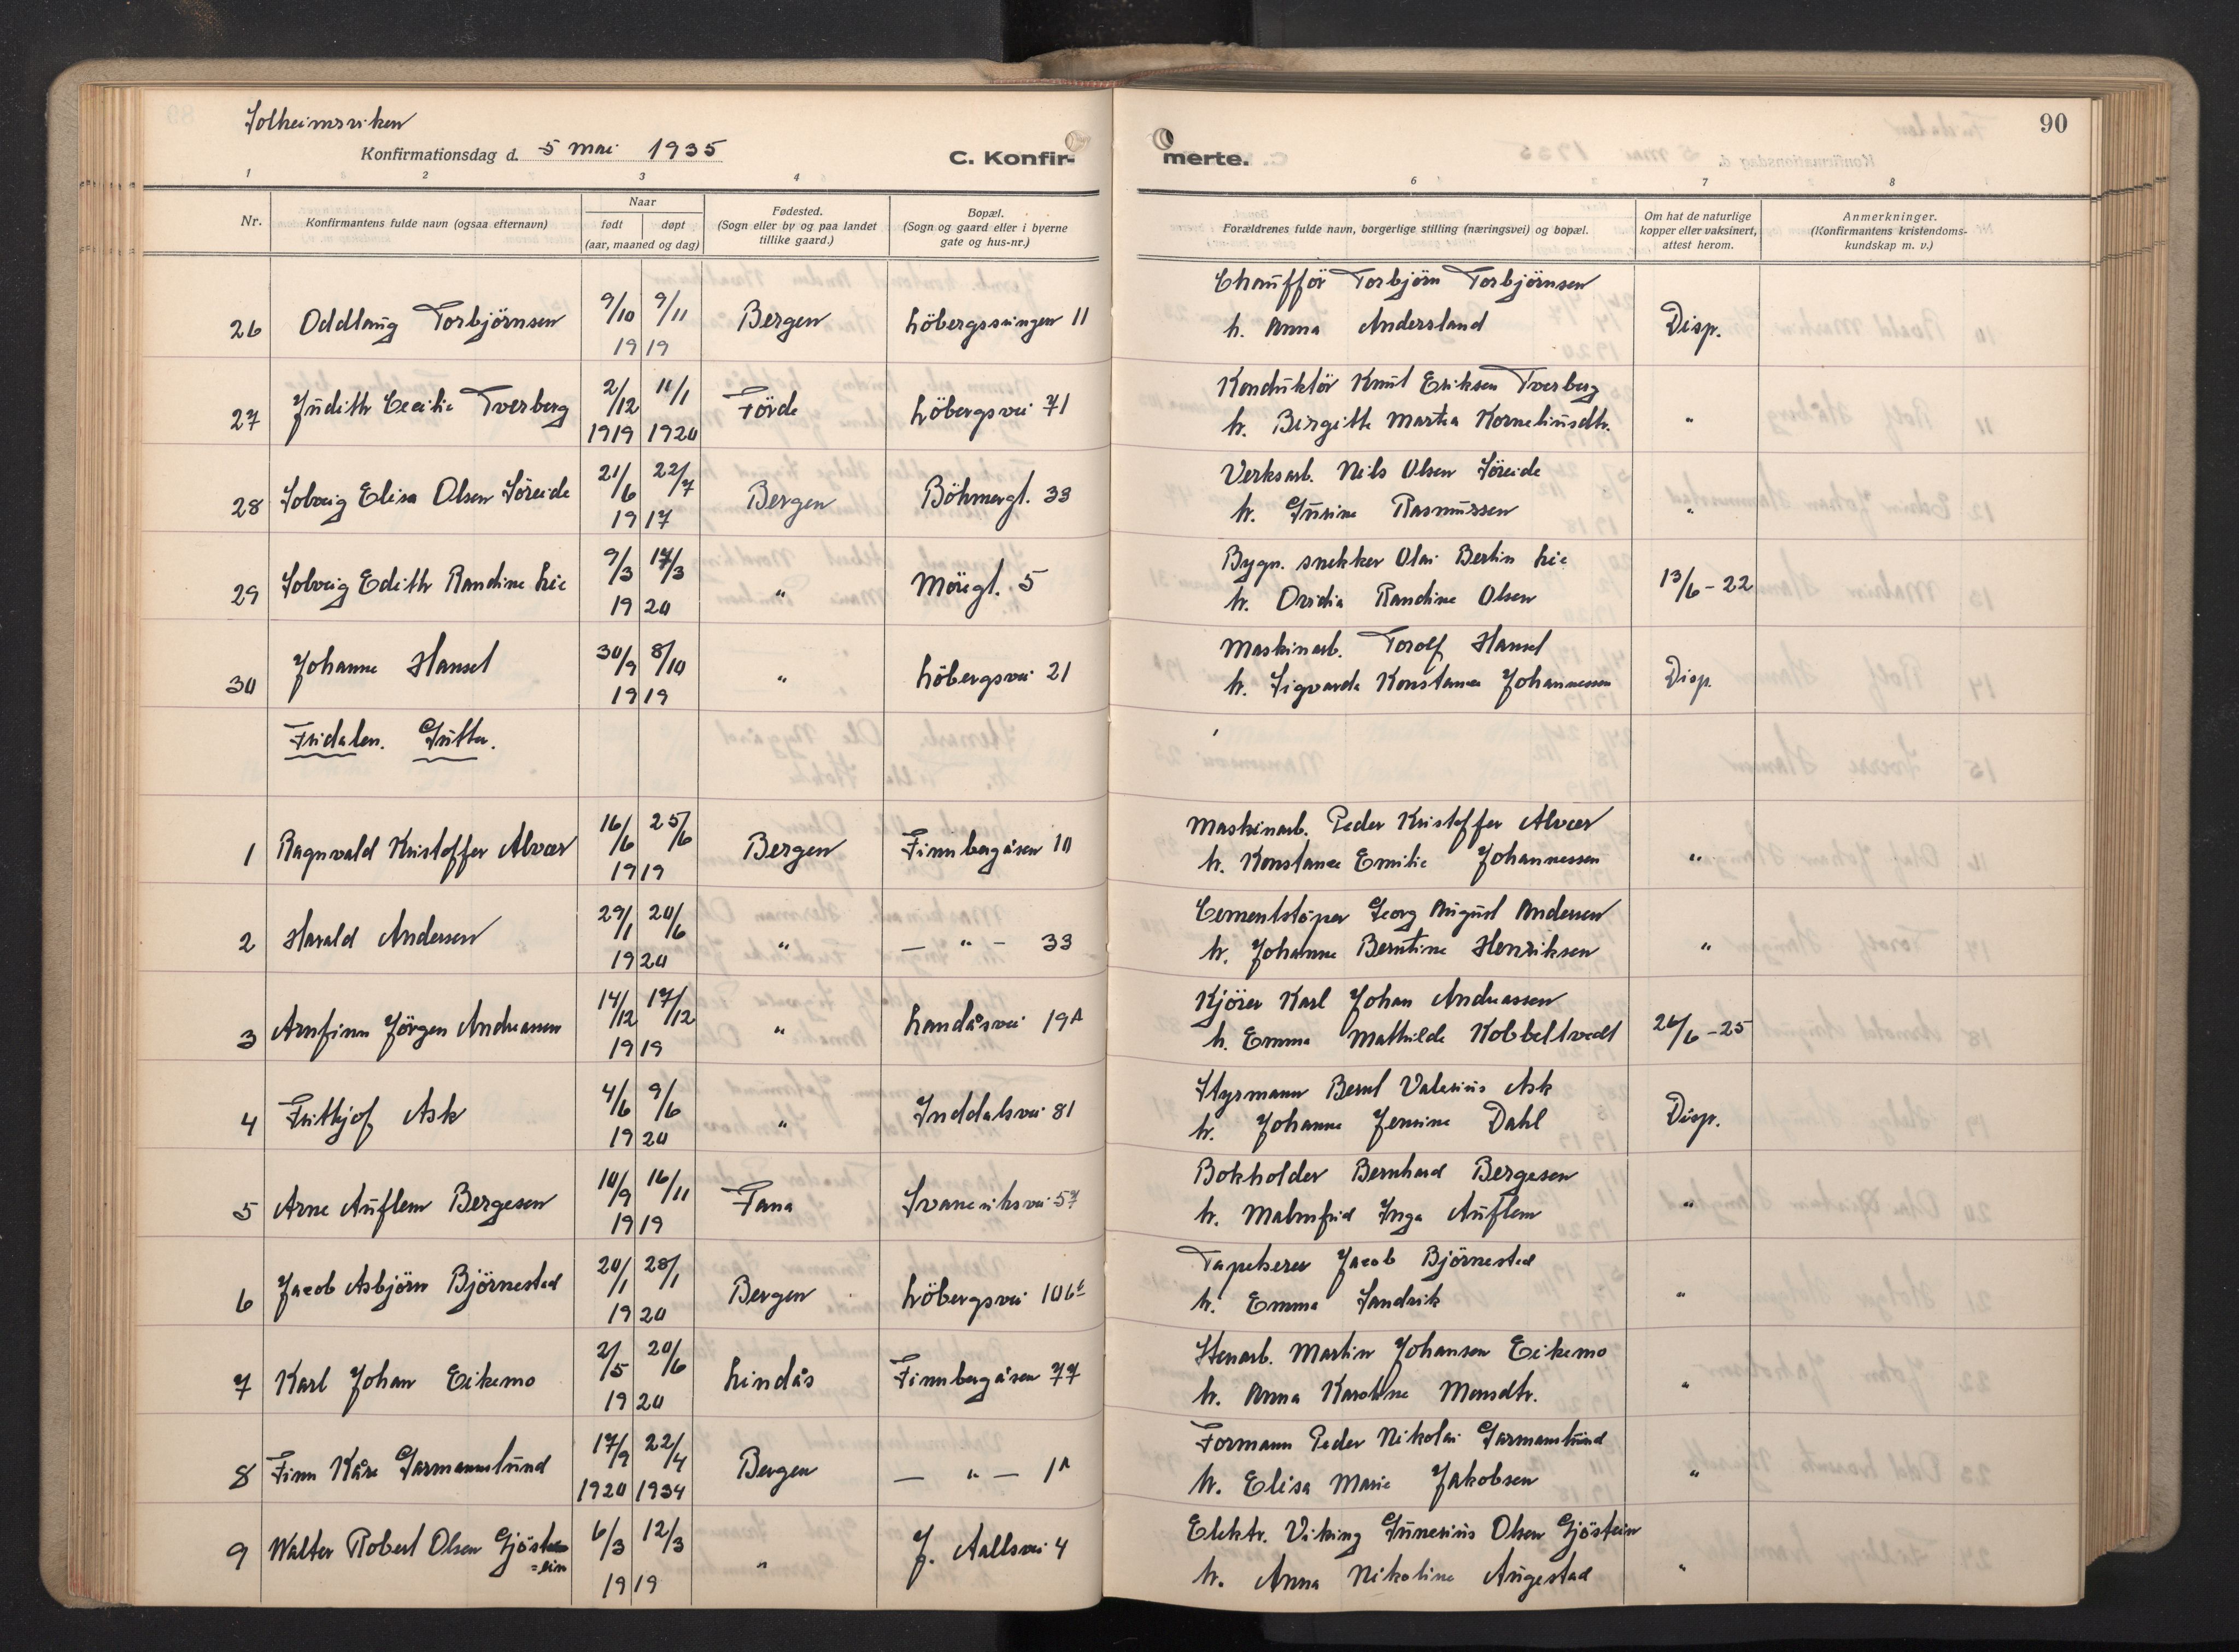 Solheimsviken
Konfirmationsdag d. 5 mai 1935
C. Konfir-
merte.
90
1 2 3 4
6 7 8
Nr.
Konfirmantens fulde navn (ogsaa efternavn)
Naar
født døpt
(aar, maaned og dag)
Fødested.
(Sogn eller by og paa landet
tillike gaard.)
Bopæl.
(Sogn og gaard eller i byerne
gate og hus-nr.)
Forældrenes fulde navn, borgerlige stilling (næringsvei) og bopæl.
Om hat de naturlige
kopper eller vaksinert,
attest herom.
Anmerkninger.
(Konfirmantens kristendoms-
kundskap m. v.)
Chaufför Torbjörn Torbjörnsen
26 Oddlaug Torbjörnsen 9/10 9/11 1919 Bergen Löbergssvingen 11 h. Anna Andersland Disp.
Konduktör Knut Eriksen Tverberg
27 Judith Cecilie Tverberg 2/12 1919 11/1 1920 Förde Löbergsvei 71 h. Birgitte Martea Korneliusdtr. "
Verksarb. Nils Olsen Söreide
28 Solveig Elisa Olsen Söreide 21/6 22/7 1917 Bergen Böhmergt. 33 h. Gurine Rasmussen "
Bygn. snekker Olai Bertin Lie
29 Solveig Edith Randine Lie 9/3 17/3 1920 " Möregt. 5 h. Ovidia Randine Olsen 13/6-22
Maskinarb. Torolf Hansel
30 Johanne Hansel 30/9 8/10 1919 " Löbergsvei 21 h. Sigvarda Konstance Johannessen Disp.
Fridalen. Gutter.
Maskinarb. Peder Kristoffer Alvær
1 Ragnvald Kristoffer Alvær 16/6 25/6 1919 Bergen Finnbergåsen 10 h. Konstance Emilie Johannessen "
Cementstöper Georg August Andersen
2 Harald Andersen 29/1 20/6 1920 " — " — 33 h. Johanne Berntine Henriksen "
Kjörer Karl Johan Andreassen
3 Arnfinn Jörgen Andreassen 14/12 17/12 1919 " Landåsvei 19A h. Emma Mathilde Kobbeltvedt 26/6-25
Styrmann Bernt Valerius Ask
4 Frithjof Ask 4/6 9/6 1920 " Inddalsvei 81 h. Johanne Jensine Dahl Disp.
Bokholder Bernhard Bergesen
5 Arne Auflem Bergesen 10/9 16/11 1919 Fana Svaneviksvei 57 h. Malmfrid Inga Auflem "
Tapetserer Jacob Björnestad
6 Jacob Asbjörn Björnestad 20/1 28/1 1920 Bergen Löbergsvei 106 h. Emma Sandvik "
Stenarb. Martin Johansen Eikemo
7 Karl Johan Eikemo 2/5 20/6 1920 Lindås Finnbergåsen 77 h. Anna Karoline Monsdtr. "
Formann Peder Nikolai Garmannslund
8 Finn Kåre Garmannslund 17/9 1920 22/4 1934 Bergen — " — 1A h. Elisa Marie Jakobsen "
Elektr. Viking Gunerius Olsen Gjöstein
9 Walter Robert Olsen Gjöst=ein 6/3 12/3 1919 " J. Aallsvei 4 h. Anna Nikoline Augestad "